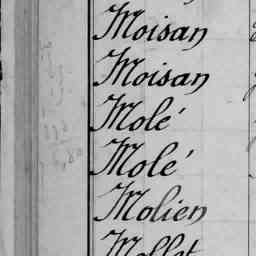 Moisan
Moisan
Molé
Molé
Molien
Mollet